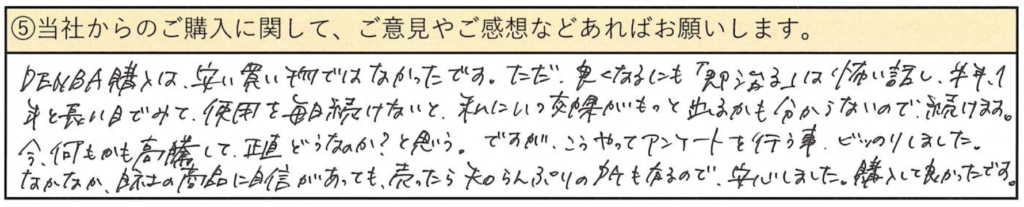 ⑤当社からのご購入に関して、ご意見やご感想などあればお願いします。
DENBA購入は、安い買い物ではなかったです。ただ、良くなるにも「即治る」は怖い話し、半年、1
年と長い目でみて、使用を毎日続けないと、それにいつ効果がもっと出るかも分からないので、続けます。
今、何もかも高騰して、正直どうなのか?と思う。ですが、こうやってアンケートを行う事、ビックリしました。
なかなか、自社の商品に自信があっても、売ったら知らんぷりの所も有るので、安心しました。購入して良かったです。